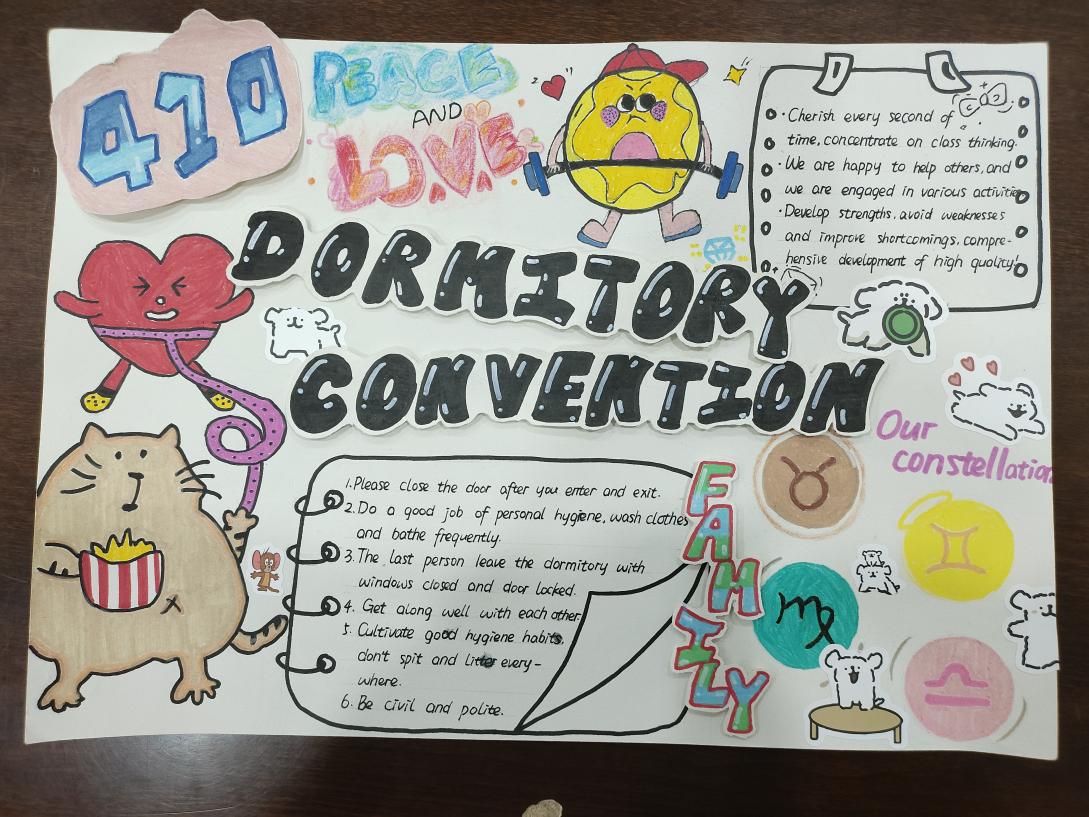 410
PEACE
AND
LOVE
· Cherish every second of
time, concentrate on class thinking.
· We are happy to help others, and
we are engaged in various activities
· Develop strengths, avoid weaknesses
and improve shortcomings, compre-
hensive development of high quality!
DORMITORY
CONVENTION
Our
constellation
1. Please close the door after you enter and exit.
2. Do a good job of personal hygiene, wash clothes
and bathe frequently.
3. The last person leave the dormitory with
windows closed and door locked.
4. Get along well with each other.
5. Cultivate good hygiene habits,
don't spit and litter every-
where.
6. Be civil and polite.
FAMILY